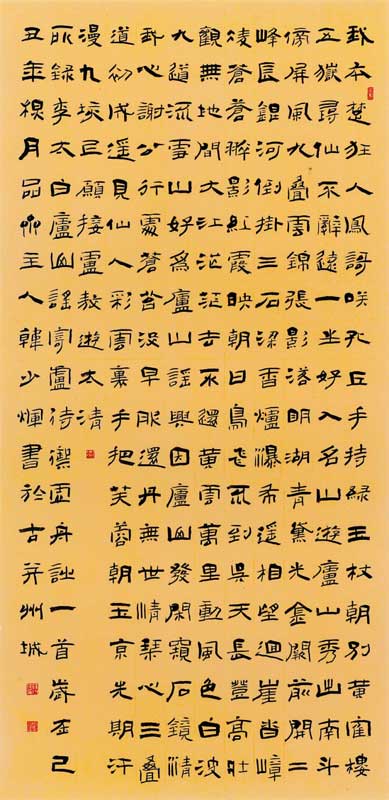 我本楚狂人鳳哥咲孔丘手持綠玉杖朝別黃寉樓
五嶽尋仙不辭遠一生好入名山遊廬山秀出南斗
傍屏風九疊雲錦張影落明湖青黛光金闕前開二
峰長銀河倒掛三石梁香爐瀑布遙相望迴崖沓嶂
凌蒼蒼翠影紅霞映朝日鳥飛不到吳天長登高壯
觀天地間大江茫茫去不還黃雲萬里動風色白波
九道流雪山好為廬山謠興因廬山發閑窺石鏡清
我心謝公行處蒼苔沒早服還丹無世情琴心三疊
道初成遙見仙人彩雲裏手把芙蓉朝玉京先期汗
漫九垓上願接盧敖遊太清
所錄李太白廬山謠寄盧侍御虛舟詩一首歲在己
丑年榴月品艸主人韓少煇書於古并州城